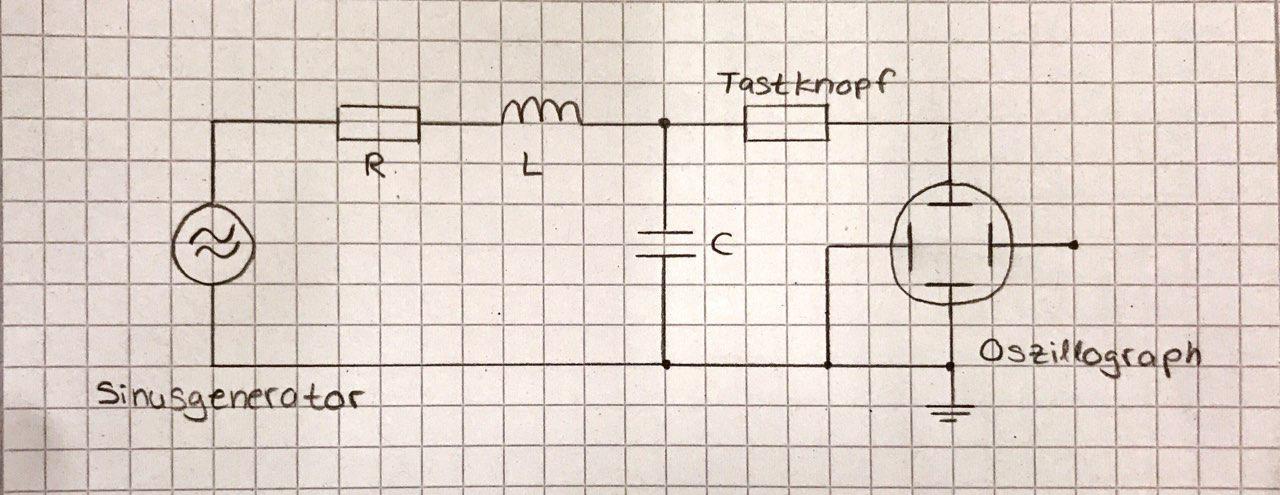 Tastknopf
R
L
C
Oszillograph
Sinusgenerator